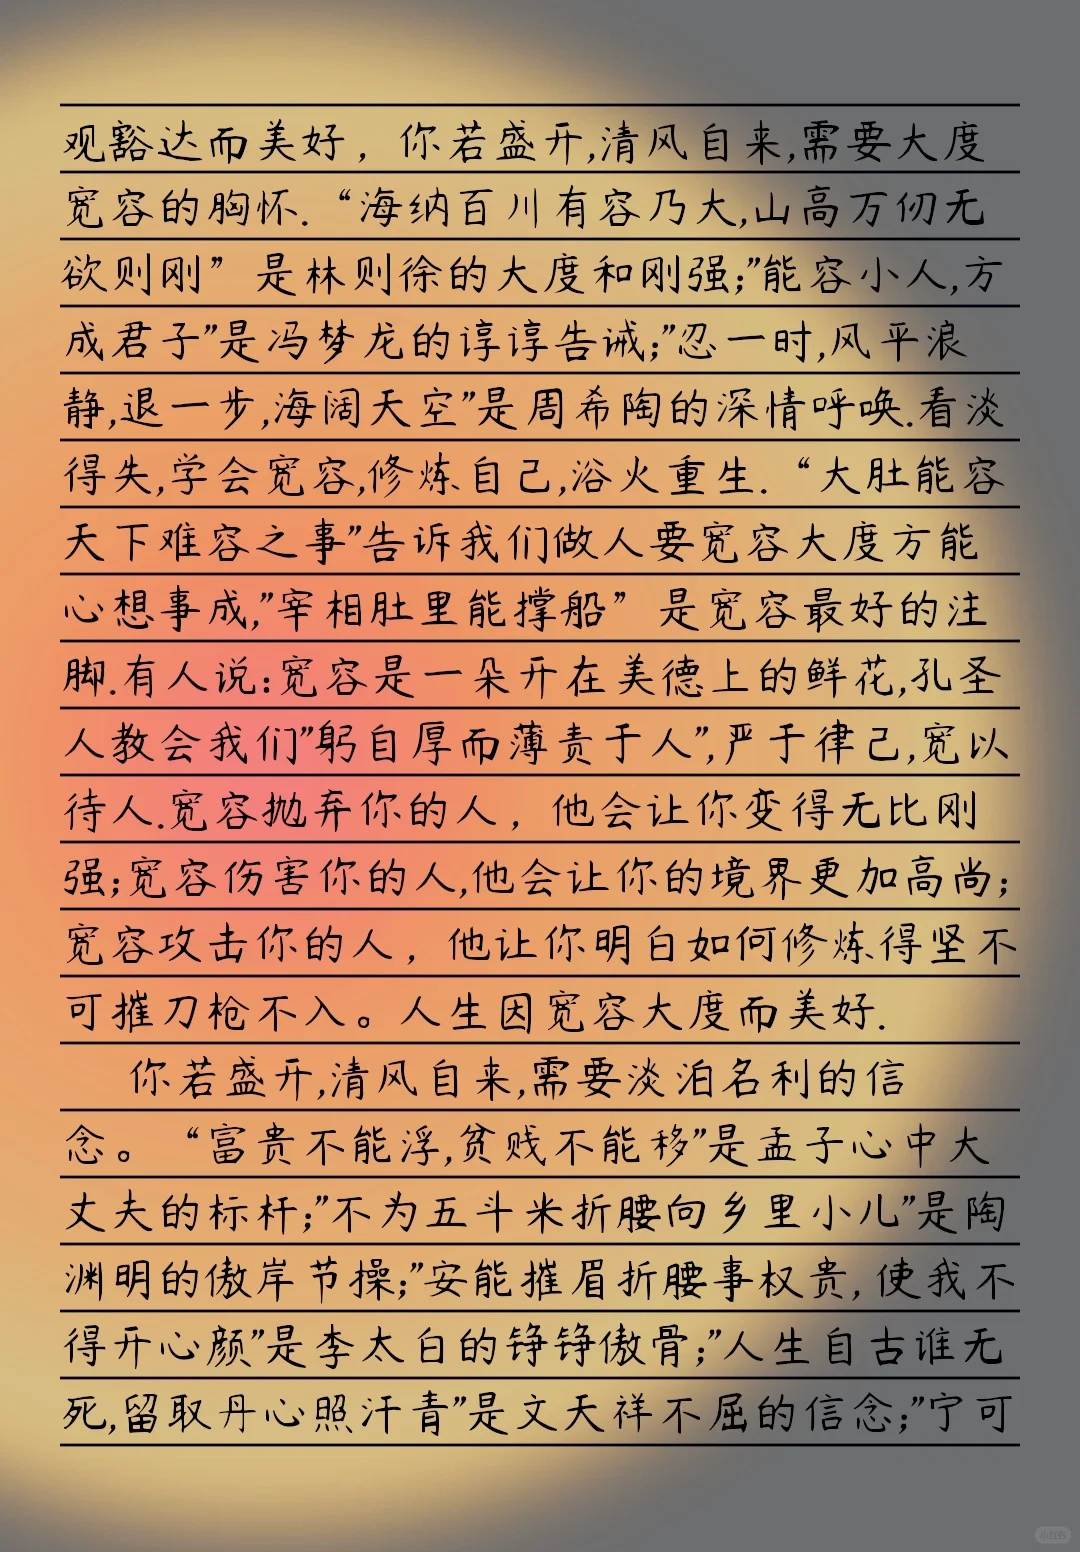 观豁达而美好，你若盛开,清风自来,需要大度
宽容的胸怀.“海纳百川有容乃大,山高万仞无
欲则刚”是林则徐的大度和刚强;”能容小人,方
成君子”是冯梦龙的谆谆告诫;”忍一时,风平浪
静,退一步,海阔天空”是周希陶的深情呼唤.看淡
得失,学会宽容,修炼自己,浴火重生.“大肚能容
天下难容之事”告诉我们做人要宽容大度方能
心想事成,”宰相肚里能撑船”是宽容最好的注
脚.有人说:宽容是一朵开在美德上的鲜花,孔圣
人教会我们”躬自厚而薄责于人”,严于律己,宽以
待人.宽容抛弃你的人，他会让你变得无比刚
强;宽容伤害你的人,他会让你的境界更加高尚;
宽容攻击你的人，他让你明白如何修炼得坚不
可摧刀枪不入。人生因宽容大度而美好.
你若盛开,清风自来,需要淡泊名利的信
念。“富贵不能浮,贫贱不能移”是孟子心中大
丈夫的标杆;”不为五斗米折腰向乡里小儿”是陶
渊明的傲岸节操;”安能摧眉折腰事权贵,使我不
得开心颜”是李太白的铮铮傲骨;”人生自古谁无
死,留取丹心照汗青”是文天祥不屈的信念;”宁可
小红书